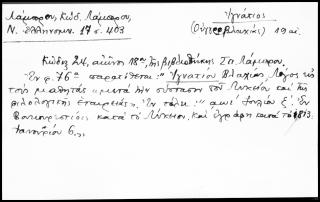 Λάμπρου, Κώδ. Λάμπρου,
Ν. Ἑλληνομν. 17 σ. 403
Ἰγνάτιος
(Οὐγγροβλαχίας) 19 αἰ.
Κώδιξ 24, αἰῶνος 18ου, τῆς βιβλιοθήκης Σπ. Λάμπρου.
Ἐν φ. 76α παρατίθεται: "Ἰγνατίου Βλαχίας Λόγος εἰς
τοὺς μαθητὰς "μετὰ τὴν σύστασιν τοῦ Λυκείου καὶ τῆς
φιλολογικῆς ἑταιρείας". Ἐν τέλει: "͵αωι΄ Ἰουλίου ζ΄. Ἐν
Βουκουρεστίοις κατὰ τὸ Λύκειον, καὶ ἐγράφη κατὰ τὸ 1813
Ἰανουαρίου 6".